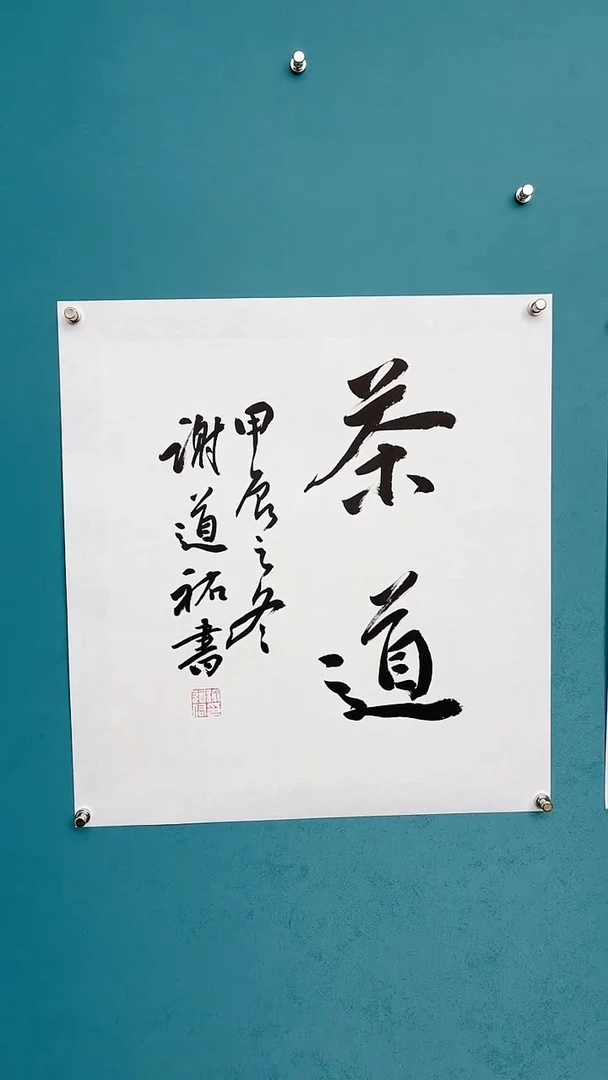 茶道
甲辰之冬
謝道祐書